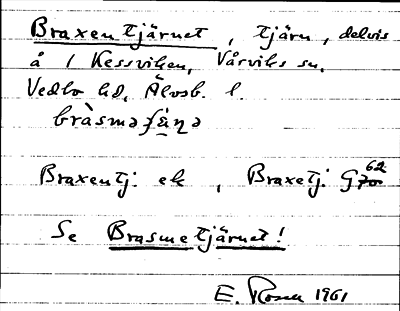 Braxentjärnet, tjärn, delvis
å 1 Kessviken, Vårviks sn,
Vedbo hd, Älvsb. l.
bràsməʃæ̣ṇə
Braxentj. ek, Braxetj. G70 62
Se Brasmetjärnet!
E. Rosell 1961